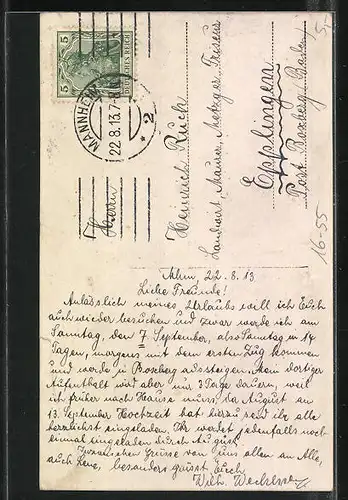 5 5
DEUTSCHES REICH
MANNHEIM
22.8.13.7-8
* 2
Herrn
Heinrich Ruck
Landwirt, Maurer, Metzger, Friseur
Epplingen
Post Boxberg Baden
5,-
16-55
Mhm, 22.8.13
Liebe Freunde!
Anlässlich meines Urlaubs will ich Euch
auch wieder besuchen und zwar werde ich am
Sonntag, den 7. September, also Sonntag in 14
Tagen, morgens mit dem ersten Zug kommen
und werde in Boxberg aussteigen. Mein dortiger
Aufenthalt wird aber nur 2 Tage dauern, weil
ich früher nach Hause muss, da August an
13. September Hochzeit hat hierzu seid ihr alle
herzlichst eingeladen. Ihr werdet jedenfalls noch
einmal eingeladen durch August.
Grüsse von uns allen an Alle,
auch Lene, besonders grüsst Euch
Wilh.